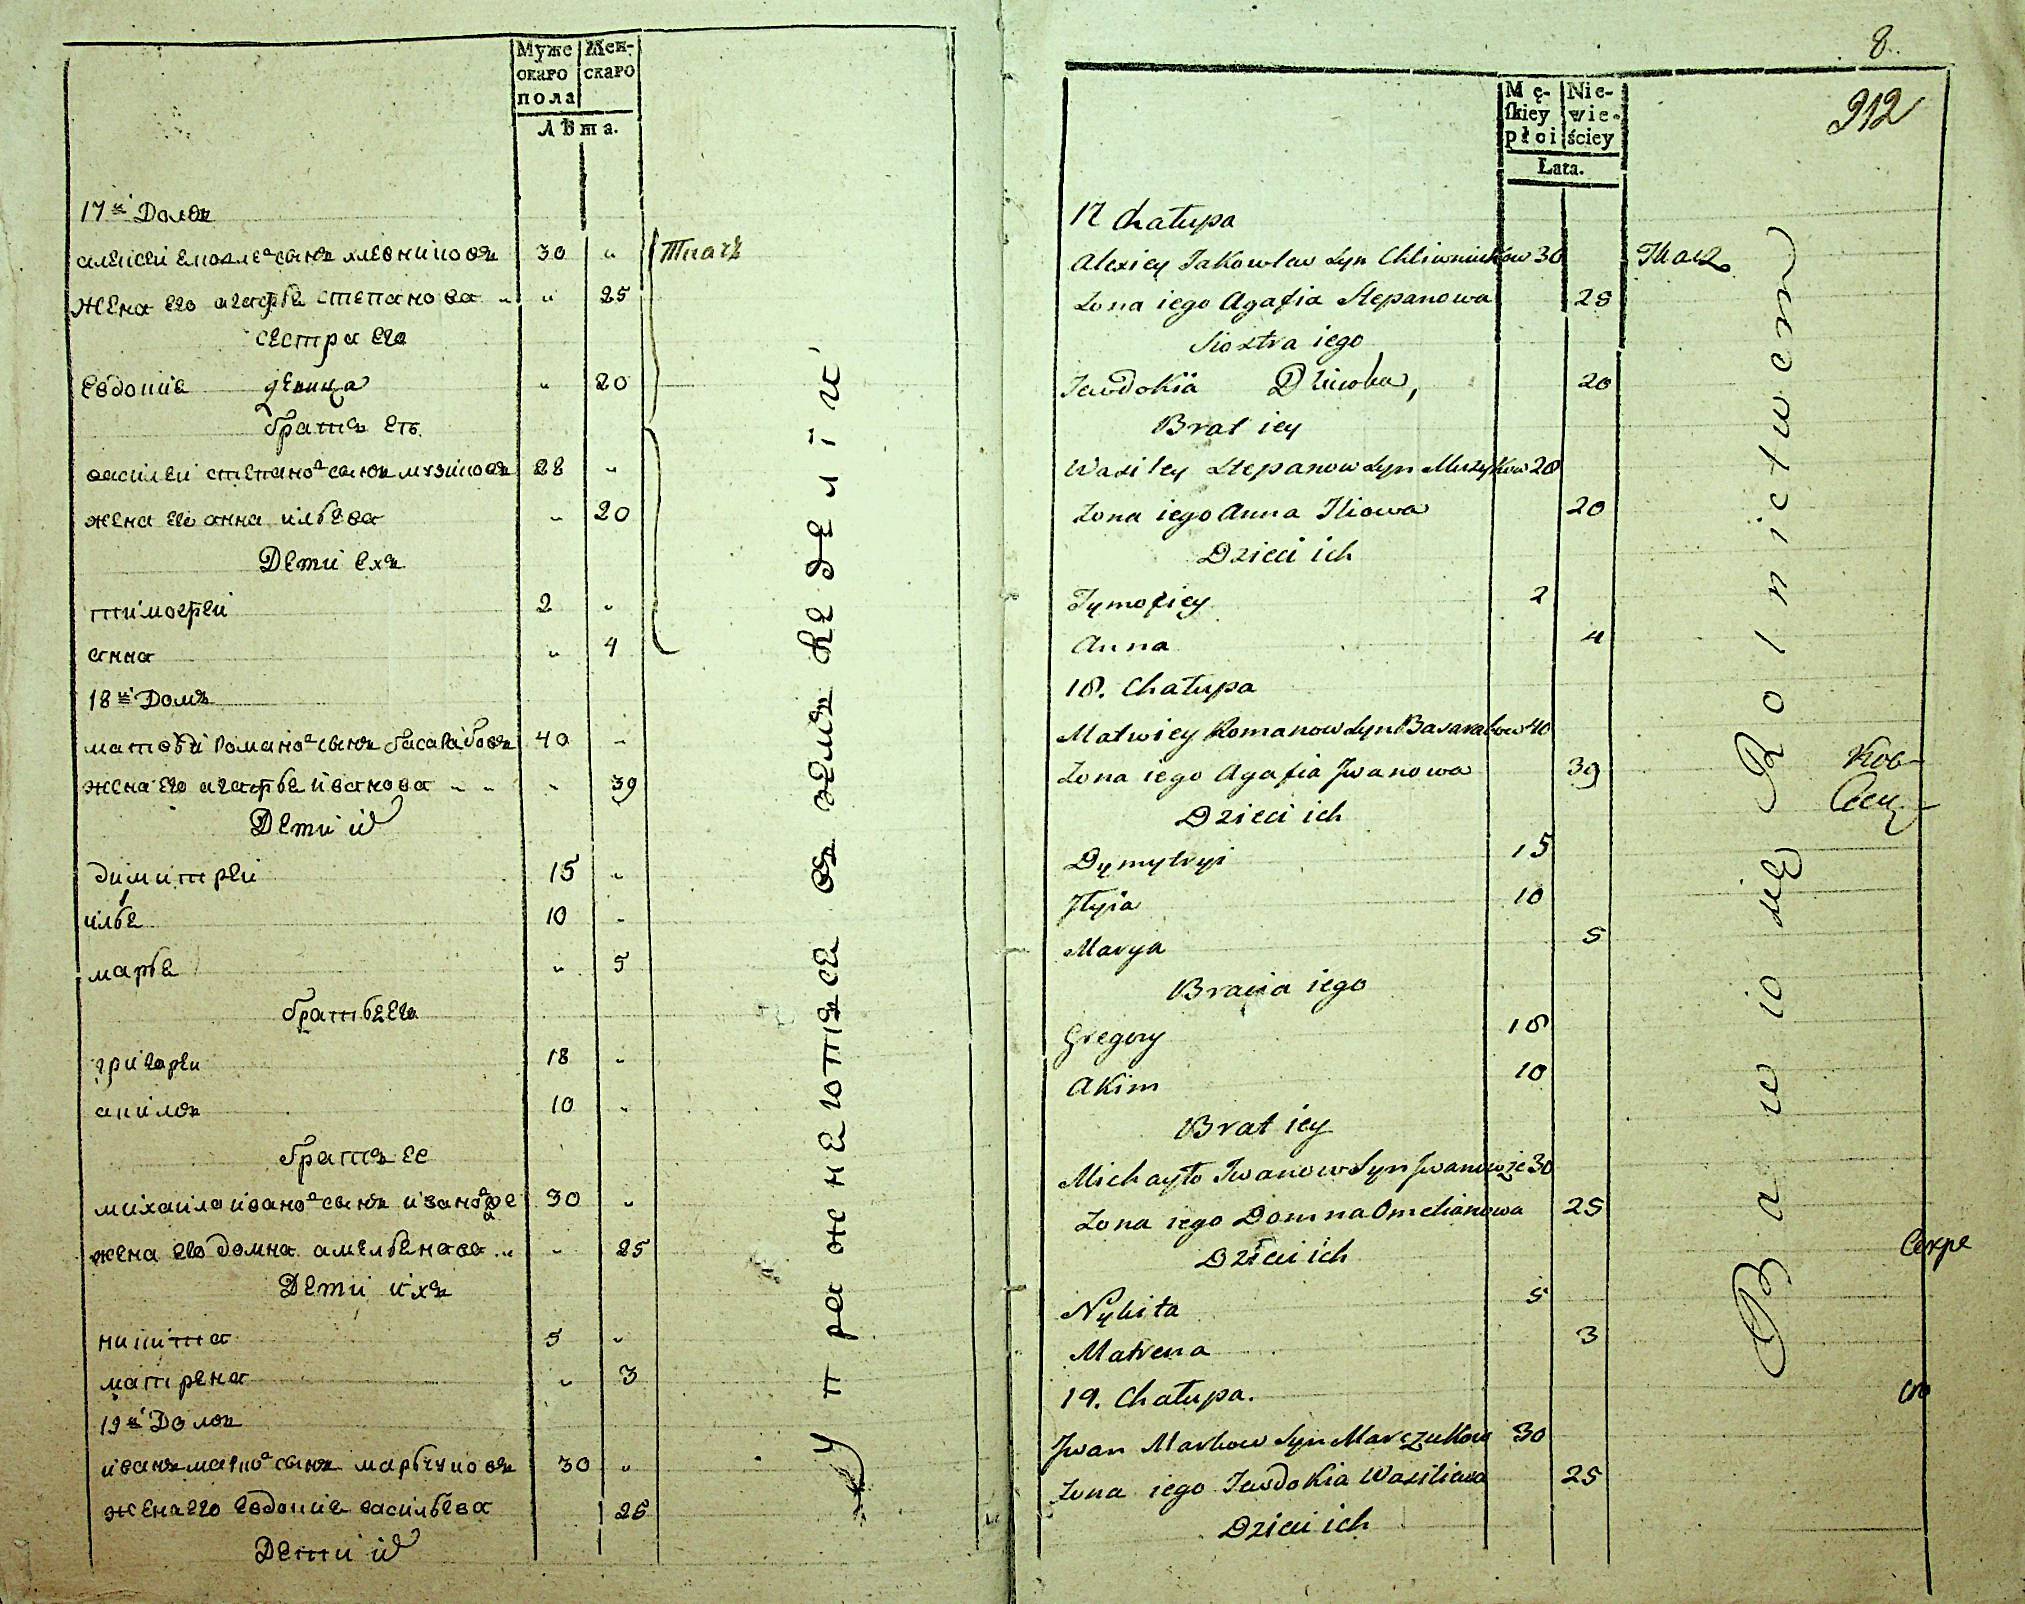 Муже
скаго
пола
Жен-
скаго
Лѣта.
17й Домъ
алексеи еκовлевъ сынъ хлевнуковъ 30 „ Ткачъ
жена его агафьѣ степанова „ „ 25
сестра его
евдокіѣ девица „ 20
братъ еѣ
василеи степановъ сынъ музыковъ 28 „
жена его анна ильева „ 20
Дети ехъ
тимофеи 2 „
анна „ 4
18й Домъ
матвѣй романовъ сынъ басарабовъ 40 „
жена его агафьѣ иванова „ „ „ 39
Дети их
димитреи 15 „
ильѣ 10 „
марьѣ „ 5
братьѣ его
григореи 18 „
акимъ 10 „
братъ ее
михаила ивановъ сынъ 30 „
жена его домна амельѣнова „ „ 25
Дети ихъ
никита 5 „
матрена „ 3
19й Домъ
иванъ марковъ сынъ марьчуковъ 30 „
жена его евдокіѣ васильева 25
Дети их
Упражнеютъсе въ земледеліи
8.
912
Mę-
skiey
płci
Nie-
wie-
ściey
Lata.
17 Chałupa
Alexiey Jakowlew Syn Chliwniukow 30 Ткачъ
Zona iego Agafia Stepanowa 25
Siostra iego
Jewdokia Dziwka, 20
Brat iey
Wasiley Stepanow Syn Muzykow 28
Zona iego Anna Iliowa 20
Dzieci ich
Tymofiey 2
Anna 4
18. Chałupa
Matwiey Romanow Syn Basarabow 40
Zona iego Agafia Jwanowa 39
Dzieci ich
Dymytryi 15
Jlyia 10
Marya 5
Bracia iego
Gregory 18
Akim 10
Brat iey
Michayło Iwanow Syn 30
Zona iego Domna Omelianowa 25
Dzieci ich
Nykita 5
Matrena 3
19. Chałupa.
Jwan Markow Syn Marczukow 30
Zona iego Jewdokia Wasiliewa 25
Dzieci ich
Bawio się Rolnictwem
Секре